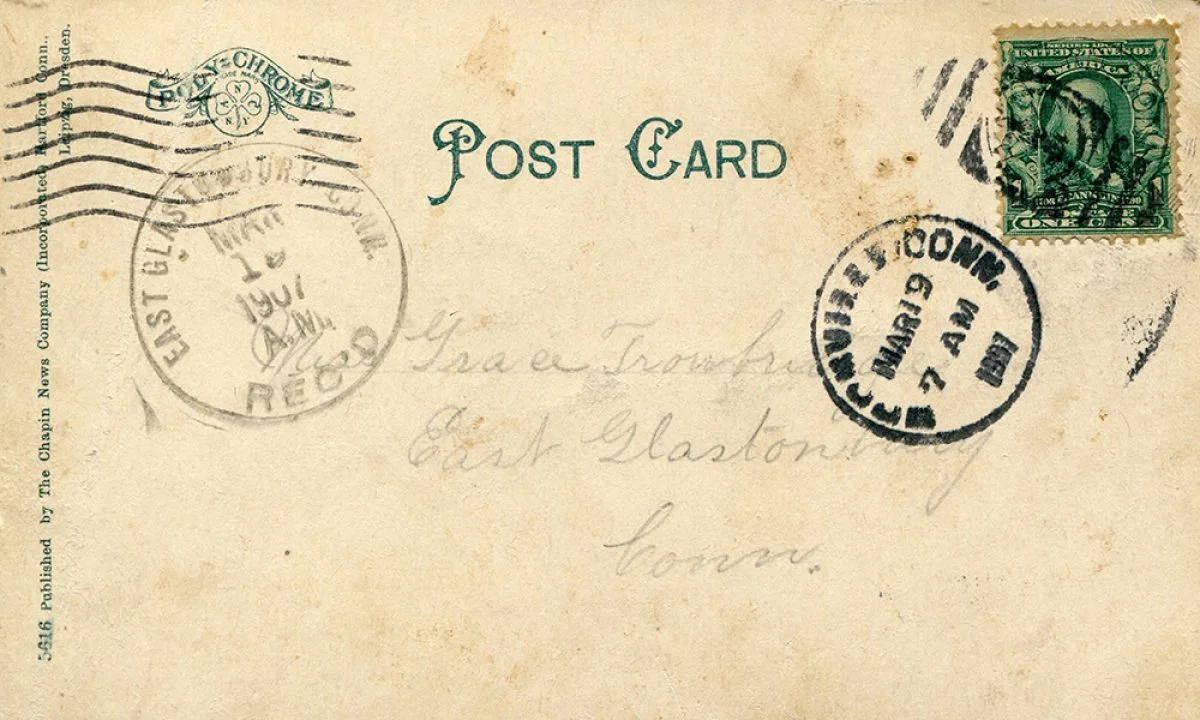 POLY-CHROME
POST CARD
SERIES 1902
UNITED STATES OF
AMERICA
ONE CENT
EAST GLASTONBURY CONN.
MAR
1907
A.M.
REC'D
CONN.
MAR 19
7 AM
1907
Miss Grace Trowbridge
East Glastonbury
Conn.
5616 Published by The Chapin News Company (Incorporated) Hartford Conn.,
Leipzig, Dresden.